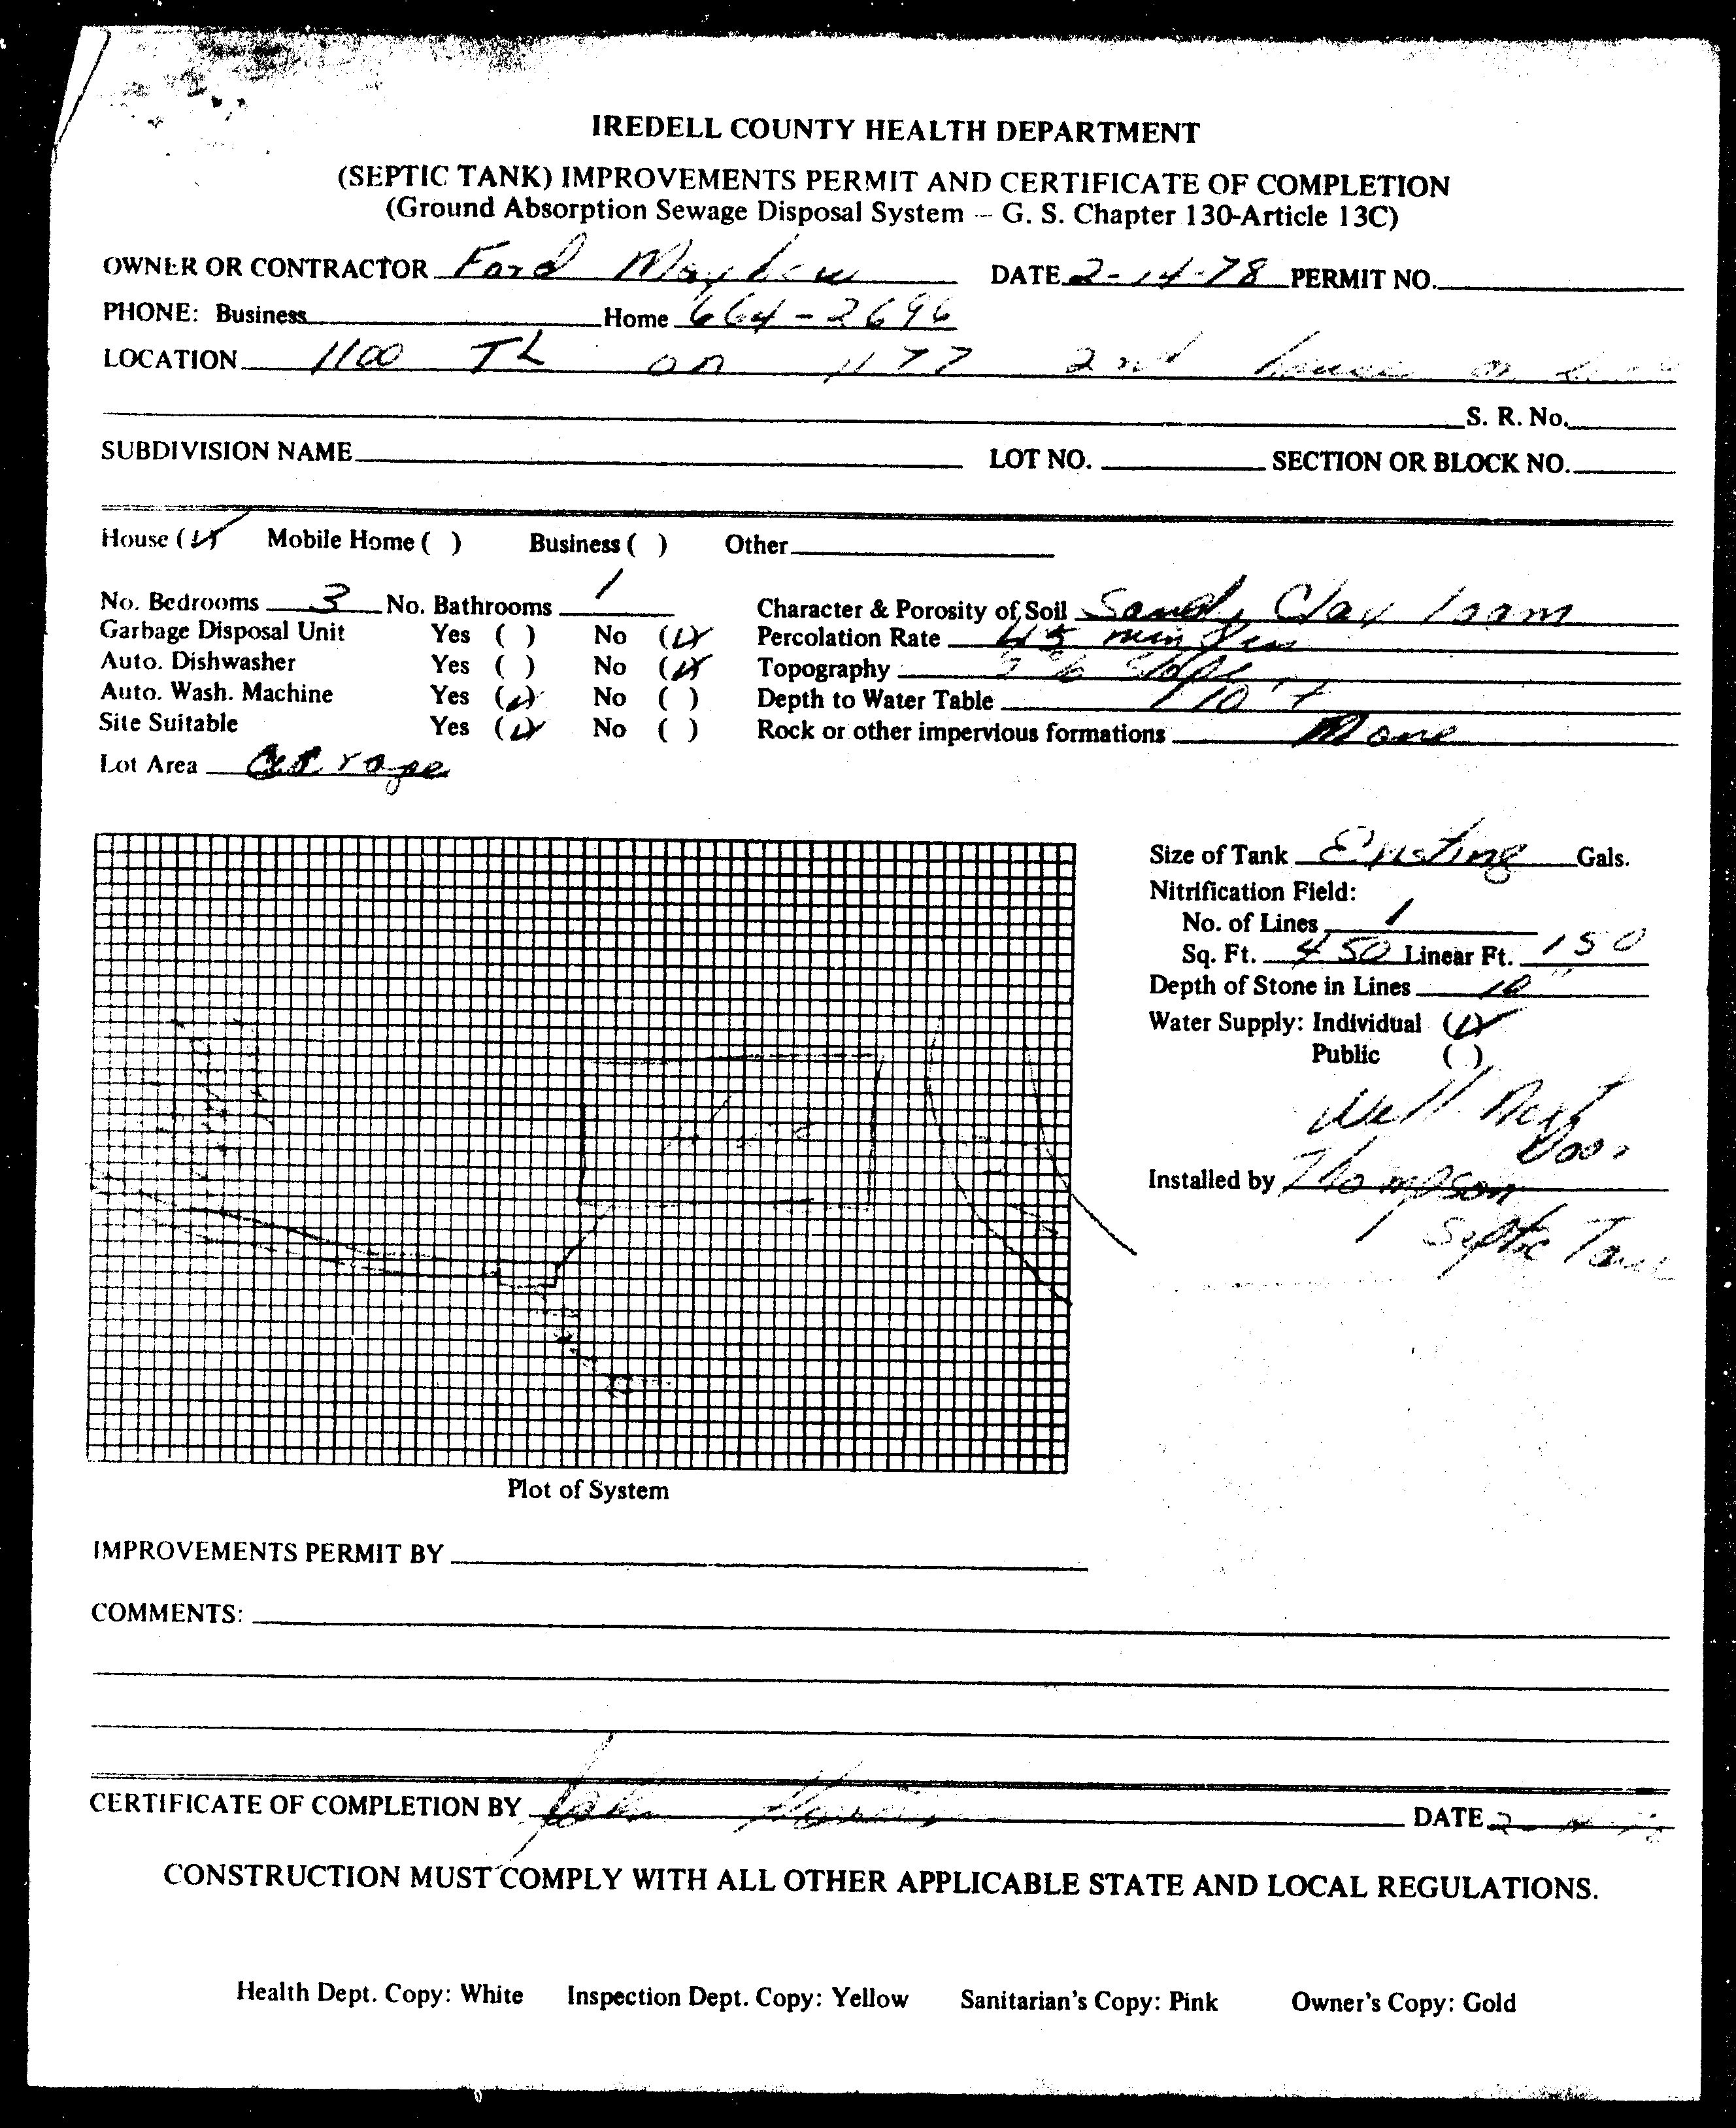 IREDELL COUNTY HEALTH DEPARTMENT
(SEPTIC TANK) IMPROVEMENTS PERMIT AND CERTIFICATE OF COMPLETION
(Ground Absorption Sewage Disposal System -- G. S. Chapter 130-Article 13C)
OWNER OR CONTRACTOR Ford Mayhew DATE 2-14-78 PERMIT NO.
PHONE: Business Home 664-2696
LOCATION 1100 TL on 1177 2nd house on
S. R. No.
SUBDIVISION NAME LOT NO. SECTION OR BLOCK NO.
House (✓) Mobile Home ( ) Business ( ) Other
No. Bedrooms 3 No. Bathrooms 1 Character & Porosity of Soil Sandy Clay loam
Garbage Disposal Unit Yes ( ) No (✓) Percolation Rate 45 min
Auto. Dishwasher Yes ( ) No (✓) Topography slope
Auto. Wash. Machine Yes (✓) No ( ) Depth to Water Table 10'+
Site Suitable Yes (✓) No ( ) Rock or other impervious formations None
Lot Area
Size of Tank Existing Gals.
Nitrification Field:
No. of Lines 1
Sq. Ft. 450 Linear Ft. 150
Depth of Stone in Lines
Water Supply: Individual (✓)
Public ( )
Well Next
Door
Installed by Thompson
Septic Tank
Plot of System
IMPROVEMENTS PERMIT BY
COMMENTS:
CERTIFICATE OF COMPLETION BY John DATE
CONSTRUCTION MUST COMPLY WITH ALL OTHER APPLICABLE STATE AND LOCAL REGULATIONS.
Health Dept. Copy: White Inspection Dept. Copy: Yellow Sanitarian's Copy: Pink Owner's Copy: Gold